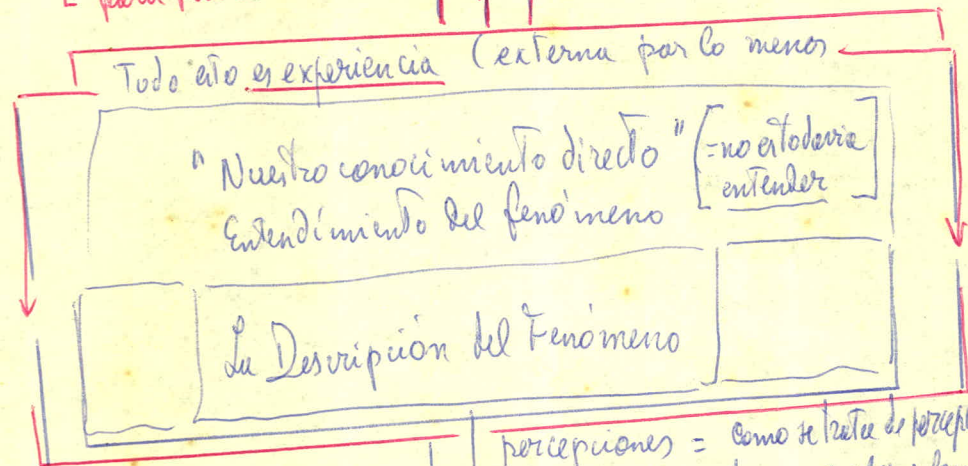 para
Todo esto es experiencia (externa por lo menos
"Nuestro conocimiento directo" [=no es todavia
entender]
Entendimiento del fenómeno
La Descripción del Fenómeno
percepciones = como se trata de